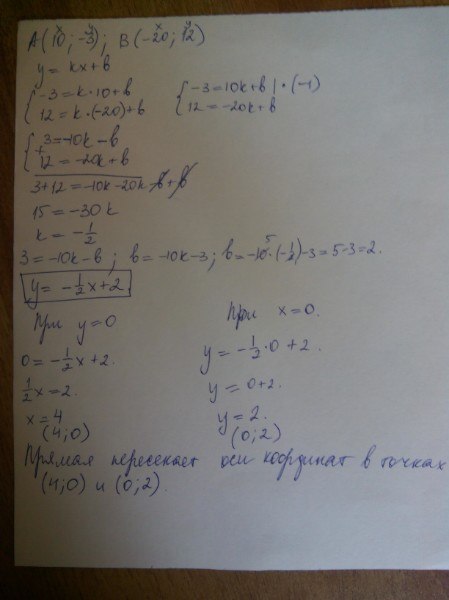 A(10; -3); B(-20; 12)
y = kx+b
{ -3 = k·10+b
12 = k·(-20)+b
{ -3 = 10k+b | ·(-1)
12 = -20k+b
{ 3 = -10k-b
+ 12 = -20k+b
3+12 = -10k-20k -b+b
15 = -30k
k = -1/2
3 = -10k-b ; b = -10k-3 ; b = -10·(-1/2)-3 = 5-3 = 2.
y = -1/2x+2
При y=0
0 = -1/2x+2.
1/2x = 2.
x = 4
(4;0)
При x=0.
y = -1/2·0+2.
y = 0+2.
y = 2.
(0;2)
Прямая пересекает оси координат в точках
(4;0) и (0;2).